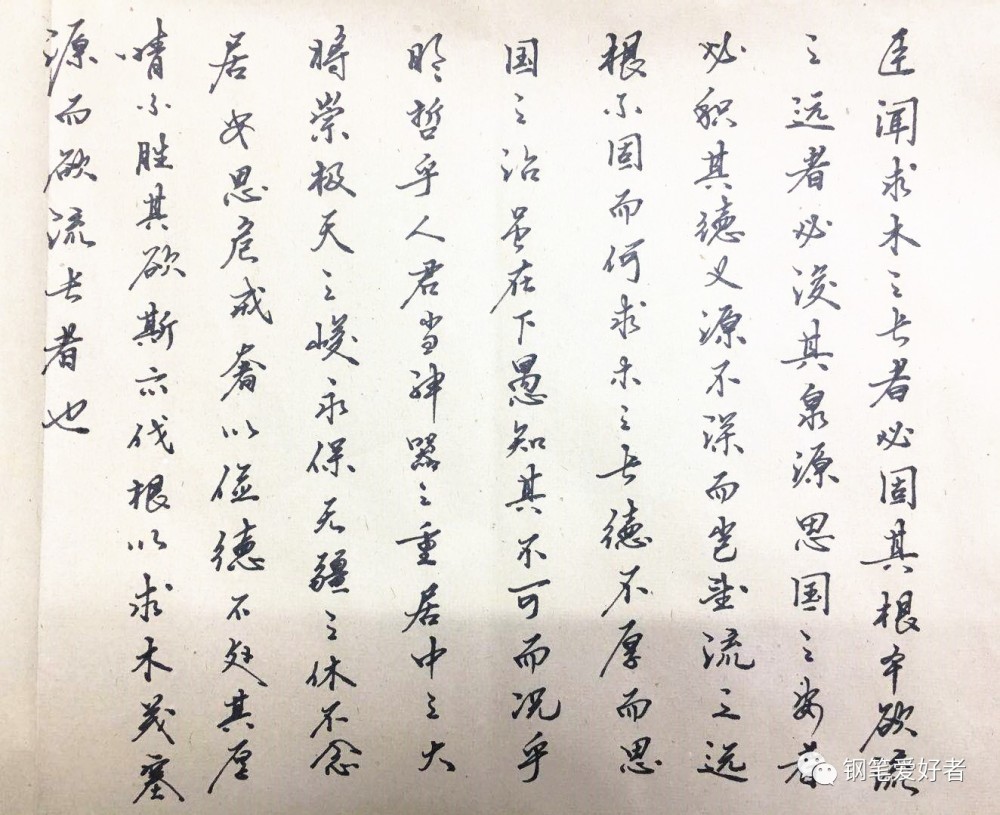 臣闻求木之长者必固其根本欲流
之远者必浚其泉源思国之安者
必积其德义源不深而岂望流之远
根不固而何求木之长德不厚而思
国之治虽在下愚知其不可而况乎
明哲乎人君当神器之重居中之大
将崇极天之峻永保无疆之休不念
居安思危戒奢以俭德不处其厚
情不胜其欲斯亦伐根以求木茂塞
源而欲流长者也
钢笔爱好者